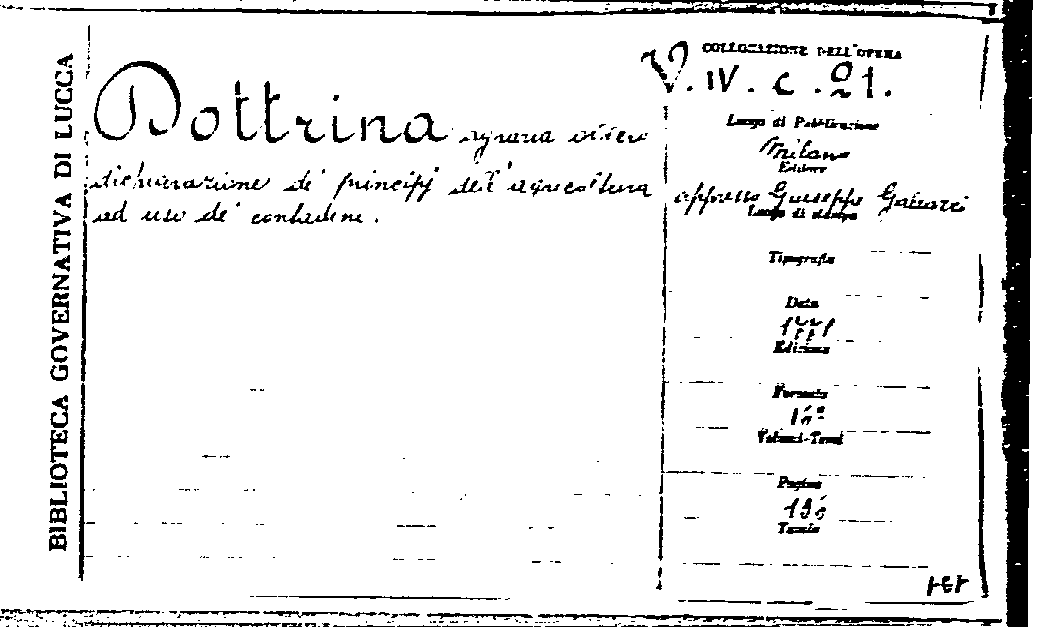 BIBLIOTECA GOVERNATIVA DI LUCCA
Dottrina agraria ossero
dichiarazione de' principj dell'agricoltura
ad uso de' contadini.
COLLOCAZIONE DELL'OPERA
V. IV. c. 21.
Luogo di Pubblicazione
Milano
Editore
appresso Giuseppe Galeazzi
Luogo di stampa
Tipografia
Data
1771
Edizione
Formato
16°
Volumi-Tomi
Pagine
196
Tavole